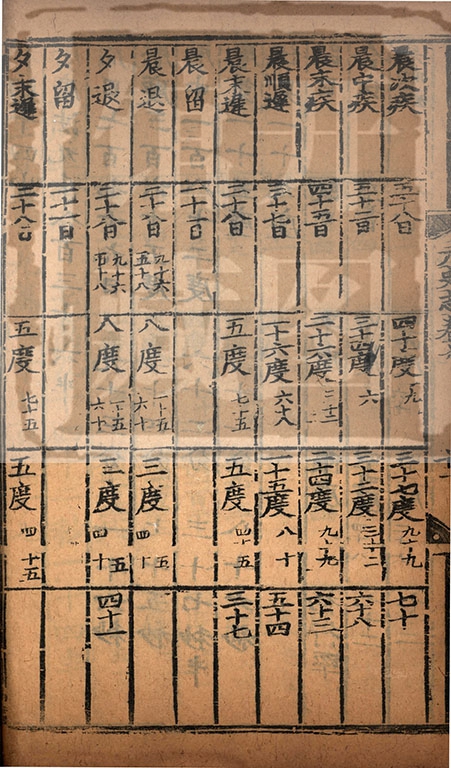 晨次疾 五十八日 四十度 九 三十七度 九十九 七十
晨中疾 五十二日 三十四度 六 三十二度 三十二 六十八
晨末疾 四十五日 二十六度 三十二 二十四度 九十九 六十三
晨順遲 三十七日 一十六度 六十八 一十五度 八十 五十四
晨末遲 二十八日 五度 七十五 五度 四十五 三十七
晨留 一十一日
晨退 二十八日 九十六 五十八 八度 一十五 六十 三度 四十五
夕退 二十八日 九十六 五十八 八度 一十五 六十 三度 四十五 四十一
夕留 一十一日
夕末遲 二十八日 五度 七十五 五度 四十五